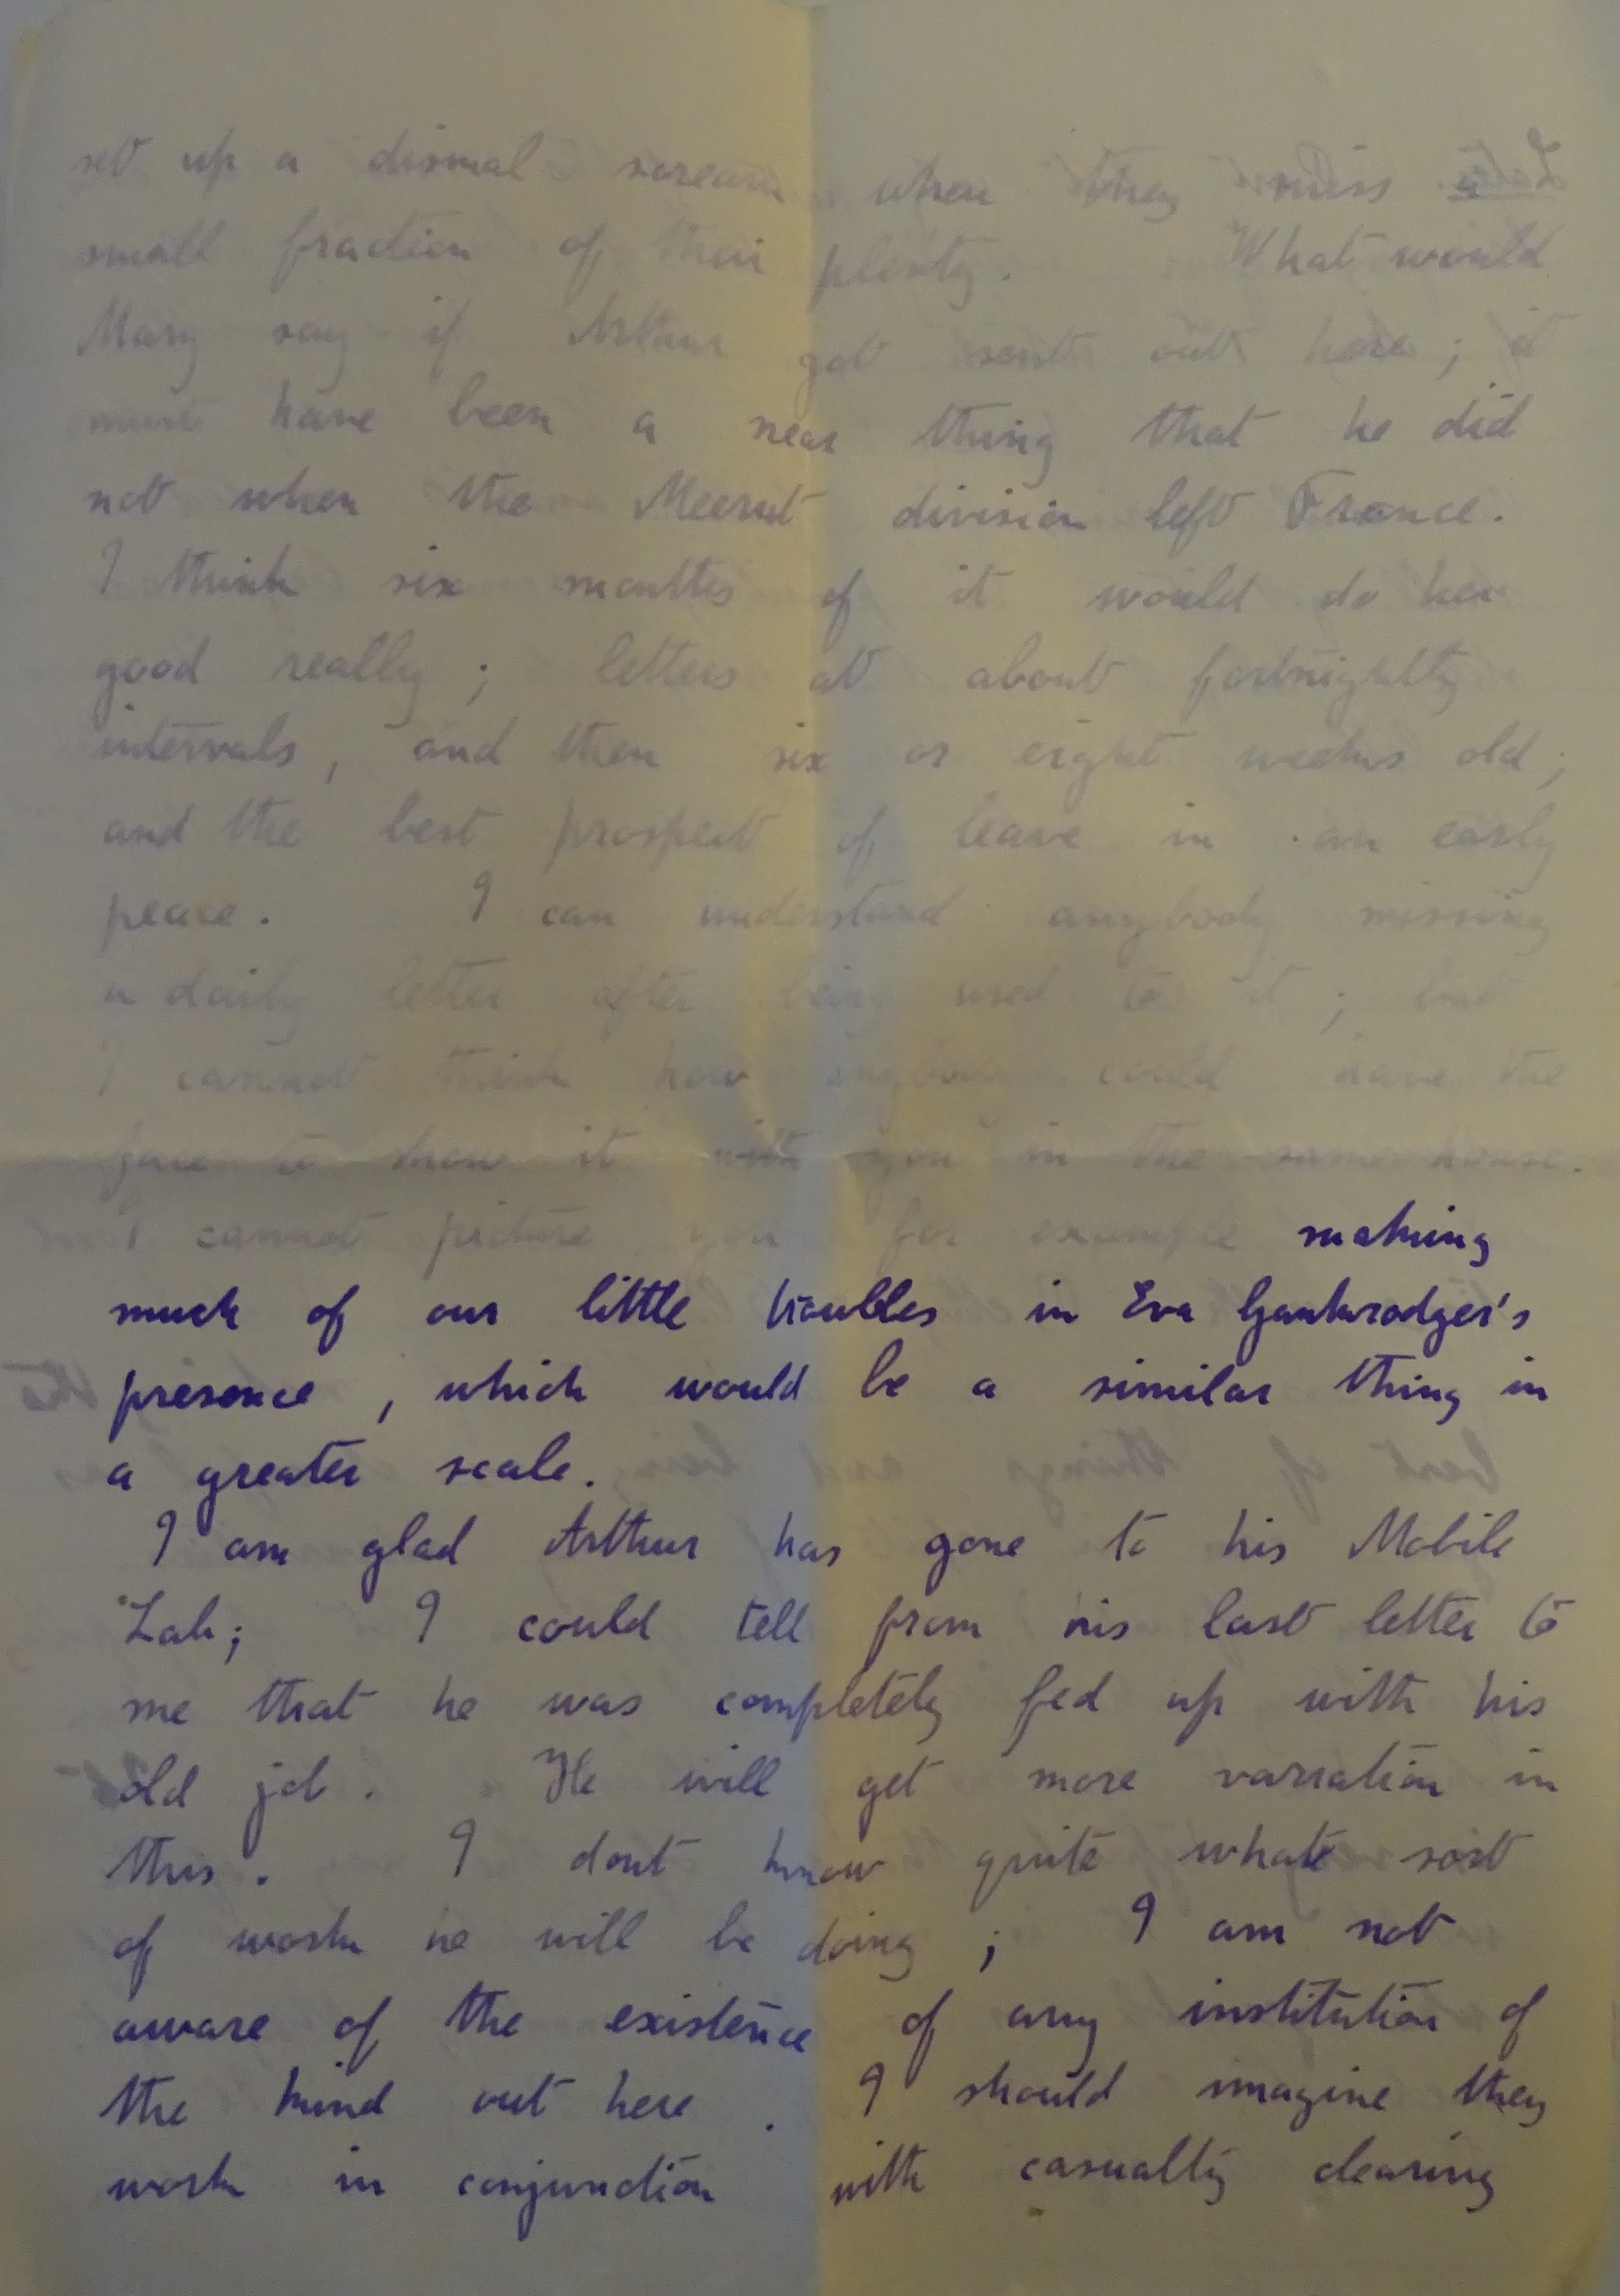 set up a dismal scream when they miss a
small fraction of their plenty. What would
Mary say if Arthur got sent out here; it
must have been a near thing that he did
not when the Meerut division left France.
I think six months of it would do her
good really; letters at about fortnightly
intervals, and then six or eight weeks old;
and the best prospect of leave in an early
peace. I can understand anybody missing
a daily letter after being used to it; but
I cannot think how anybody could have the
face to show it with you in the same house.
I cannot picture you for example making
much of our little troubles in Eva
presence, which would be a similar thing in
a greater scale.
I am glad Arthur has gone to his Mobile
Lab; I could tell from his last letter to
me that he was completely fed up with his
old job. He will get more variation in
this. I dont know quite what sort
of work he will be doing; I am not
aware of the existence of any institution of
the kind out here. I should imagine they
work in conjunction with casualty clearing